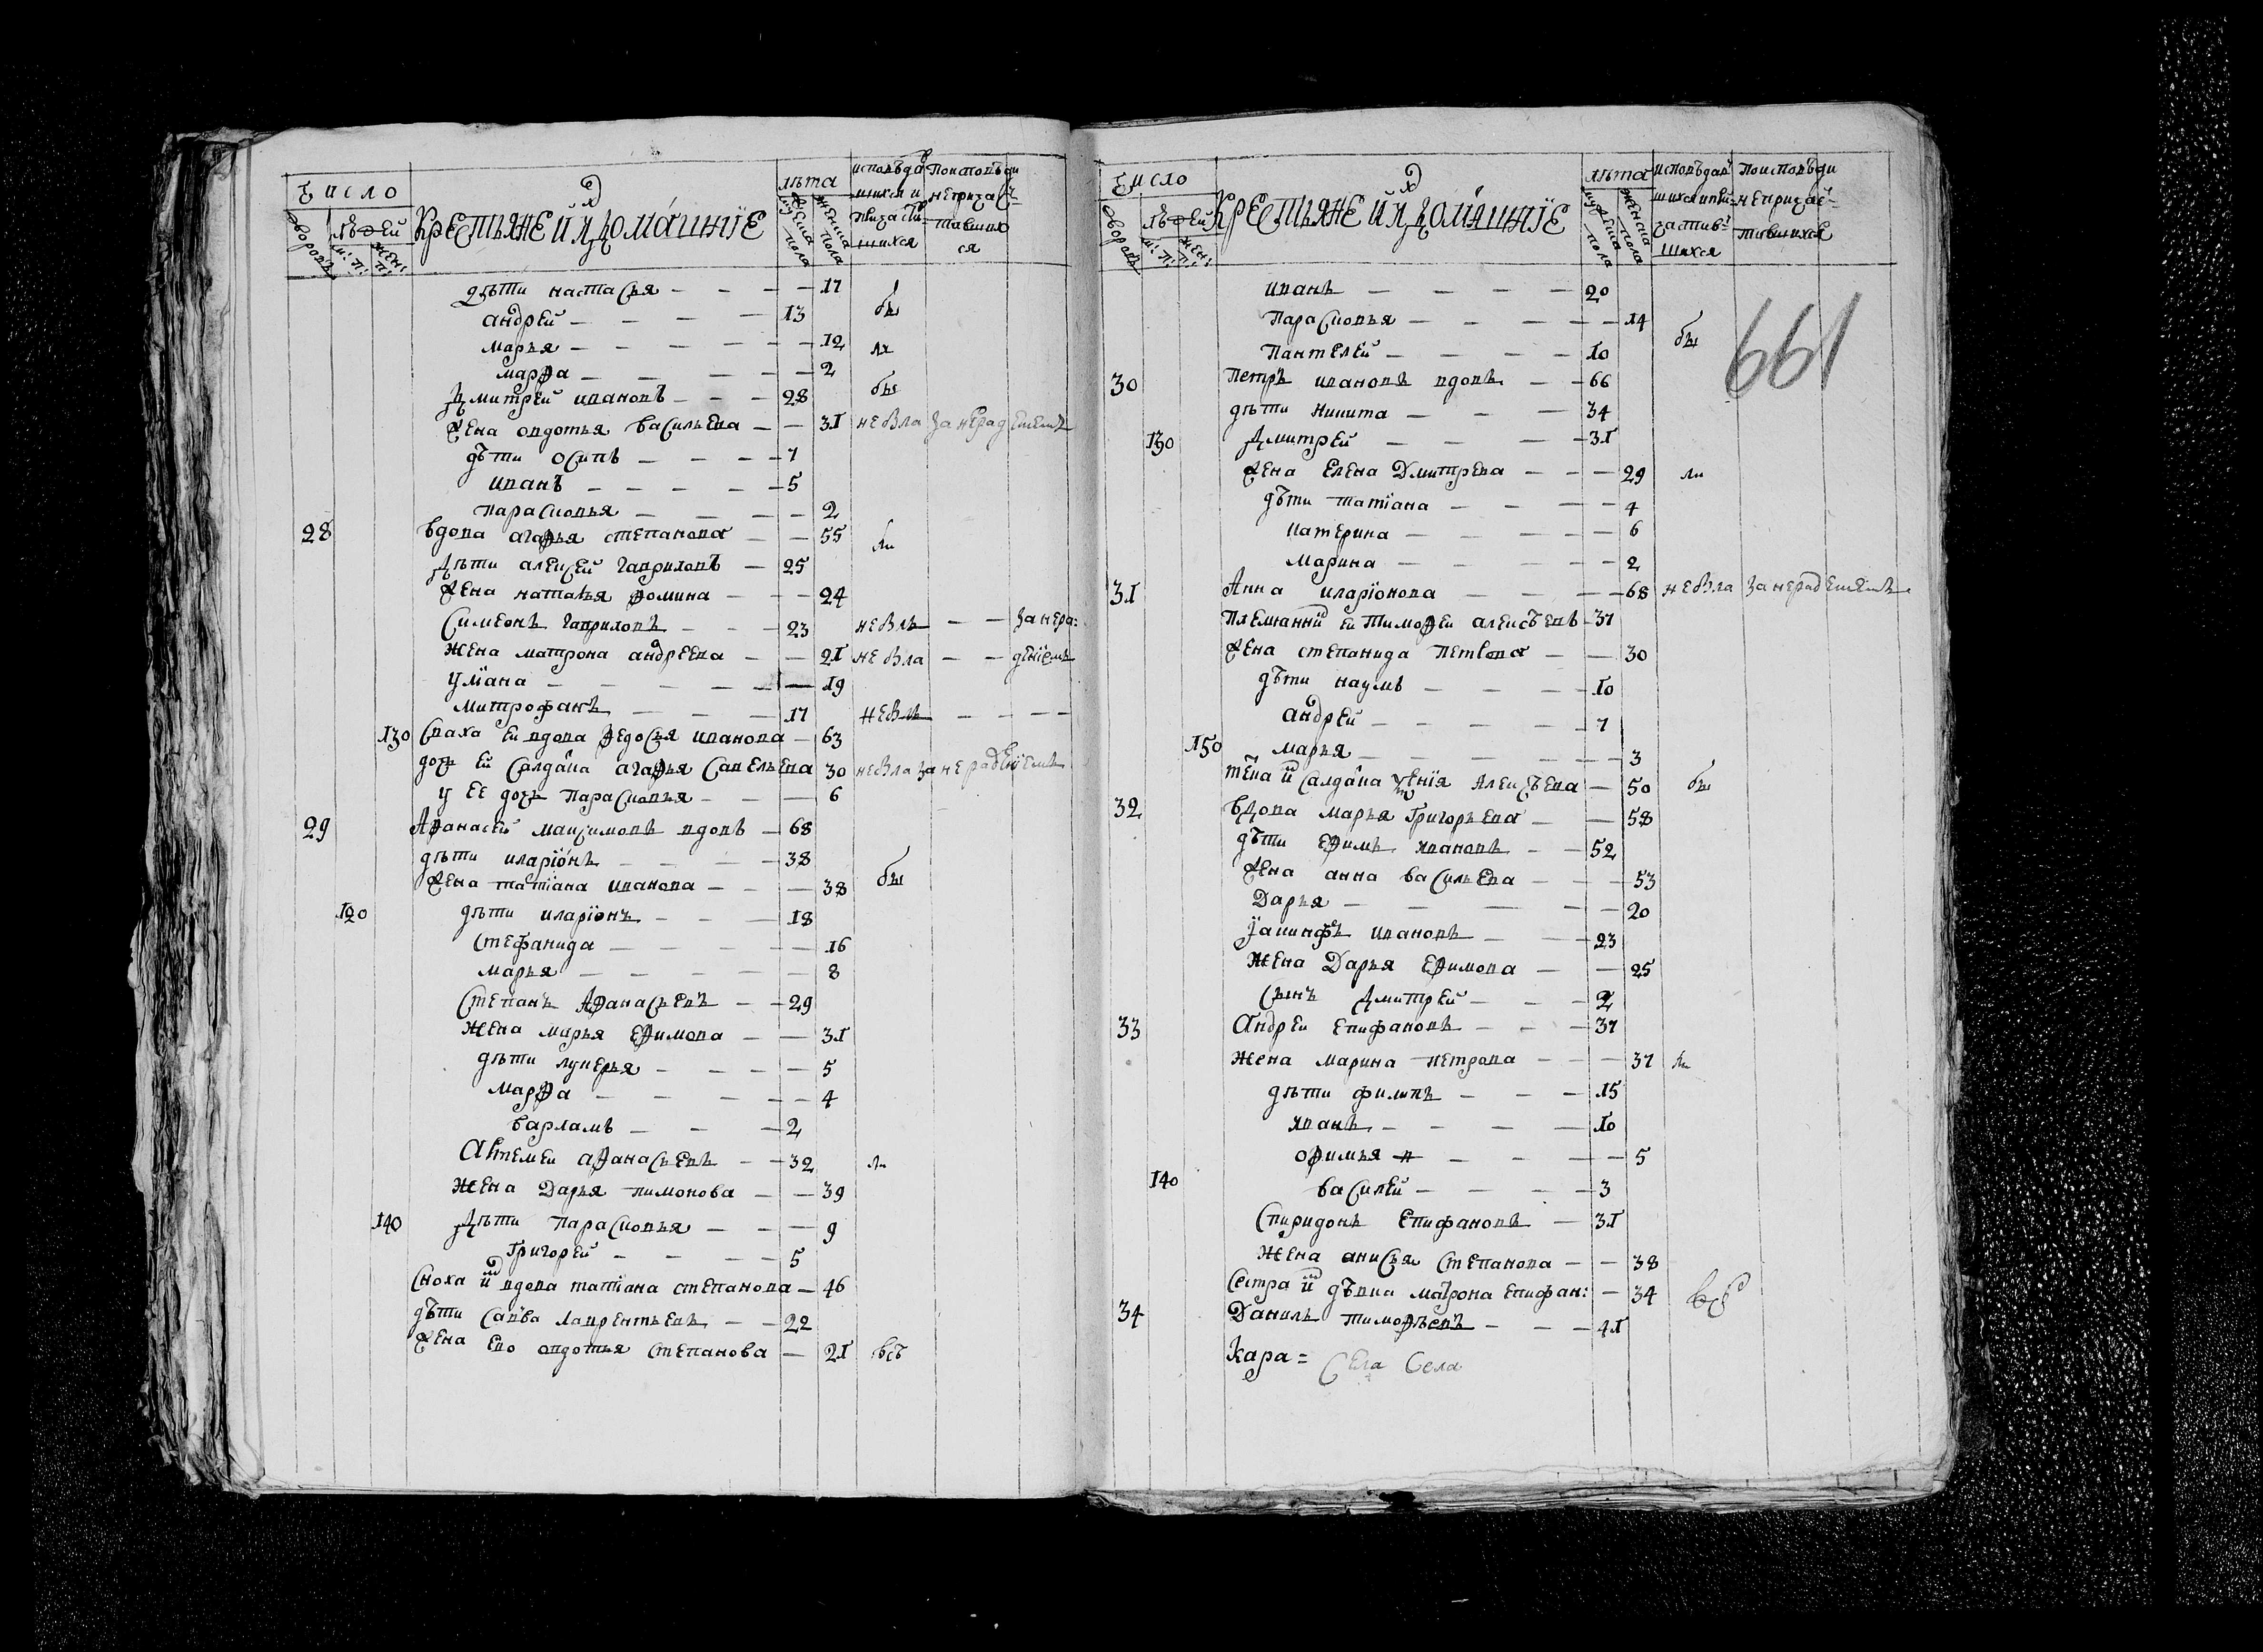 Число
дворовъ
людей
м: п:
жен: п:
Крестьяне и ихъ домашніе
лѣта
мужеска пола
женска пола
исповѣдав
шихся и
причасти
шихся
По исповѣди
не причас
тавших
ся
дѣти настасья — — — — 17
андрей — — — — 13 бы
марья — — — — — 12 ли
марфа — — — — — 2
28 Дмитрей ивановъ — — — 28 бы
жена овдотья васильева — — 31 не была за нерадениемъ
дѣти осипъ — — — — 7
иванъ — — — — — 5
парасковья — — — — 2
28 вдова агафья степанова — — 55 ли
Дѣти алексей гавриловъ — 25
жена наталья фомина — — — 24
Симеонъ гавриловъ — — — 23 не былъ — — за нера:
жена матрона андреева — — 21 не была — — деніемъ
улiана — — — — — — 19
митрофанъ — — — 17 не былъ — — — —
130 Сноха ей вдова федосья иванова — 63
дочь ей салдатка агафья савельева 30 не была за нерадениемъ
у ее дочь парасковья — — — 6
29 Афанасей максимовъ вдовъ — 68
дѣти иларіонъ — — — — 38
жена татіана иванова — — — 38 бы
120 дѣти иларіонъ — — — 18
стефанида — — — — — 16
марья — — — — — — 8
Степанъ Афанасьевъ — — 29
жена марья ефимова — — 31
дѣти лукерья — — — — 5
марфа — — — — — 4
варламъ — — — 2
Артемей афанасьевъ — — 32 ли
жена Дарья пимонова — — 39
140 Дѣти парасковья — — — 9
григорей — — — — 5
сноха и вдова татіана степанова — 46
дѣти савва лаврентьевъ — — 22
жена ево овдотья степанова — 21 всѣ
Число
дворовъ
людей
м: п:
жен: п:
Крестьяне и ихъ домашніе
лѣта
мужеска пола
женска пола
исповѣдав
шихся и при
частив
шихся
По исповѣди
не причас
тившихся
661
иванъ — — — — — 20
парасковья — — — — — 14 бы
пантелей — — — — 10
30 петръ ивановъ вдовъ — — 66
дѣти никита — — — 34
130 Дмитрей — — — — 31
жена елена Дмитрева — — — 29 ли
дѣти татіана — — — — 4
катерина — — — — — 6
марина — — — — — 2
31 Анна иларіонова — — — — 68 не была за нерадениемъ
племянникъ ей тимофей алексѣевъ 37
жена степанида петрова — — 30
дѣти наумъ — — — — 10
андрей — — — — — 7
150 марья — — — — — — 3
алексѣева — 50 бы
32 вдова марья григорьева — — 58
дѣти ефимъ ивановъ — — 52
жена анна васильева — — — 53
Дарья — — — — — — 20
ивановъ — — 23
жена Дарья ефимова — — 25
сынъ Дмитрей — — — 2
33 Андрей епифановъ — — — 37
жена марина петрова — — — 37 ли
дѣти филипъ — — — 15
иванъ — — — — 10
офимья — — — — — 5
140 василей — — — — 3
спиридонъ Епифановъ — 31
жена анисья степанова — — 38
сестра и дѣвка матрона епифан: — 34 всѣ
34 Даниль тимофѣевъ — — — 41
Кара= Села Села